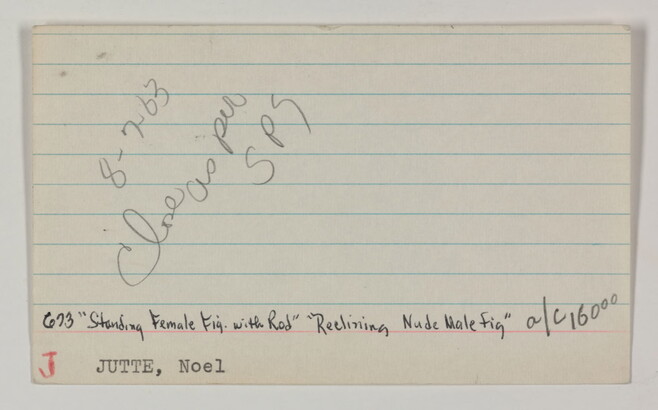 8-7-63
Close
as per
SPS
673 "Standing Female Fig. with Rod" "Reclining Nude Male Fig" a/c 160⁰⁰
J JUTTE, Noel